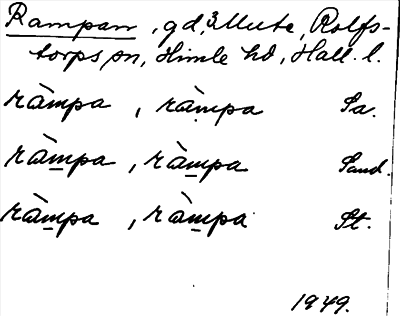 Rampan, gd, 3/4 Mute, Rolfs-
torps sn, Himle hd, Hall. l.
ràmpa, ràmpa Sa.
ràmpa, ràmpa Sand.
ràmpa, ràmpa St.
1949.